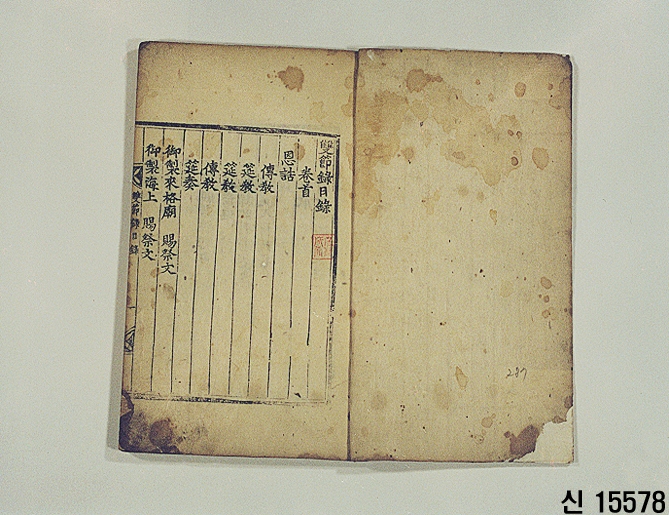 雙節錄目錄
卷首
恩誥
傳敎
筵敎
筵敎
傳敎
筵奏
御製來格廟 賜祭文
御製海上 賜祭文
雙節錄目錄
一
287
신 15578